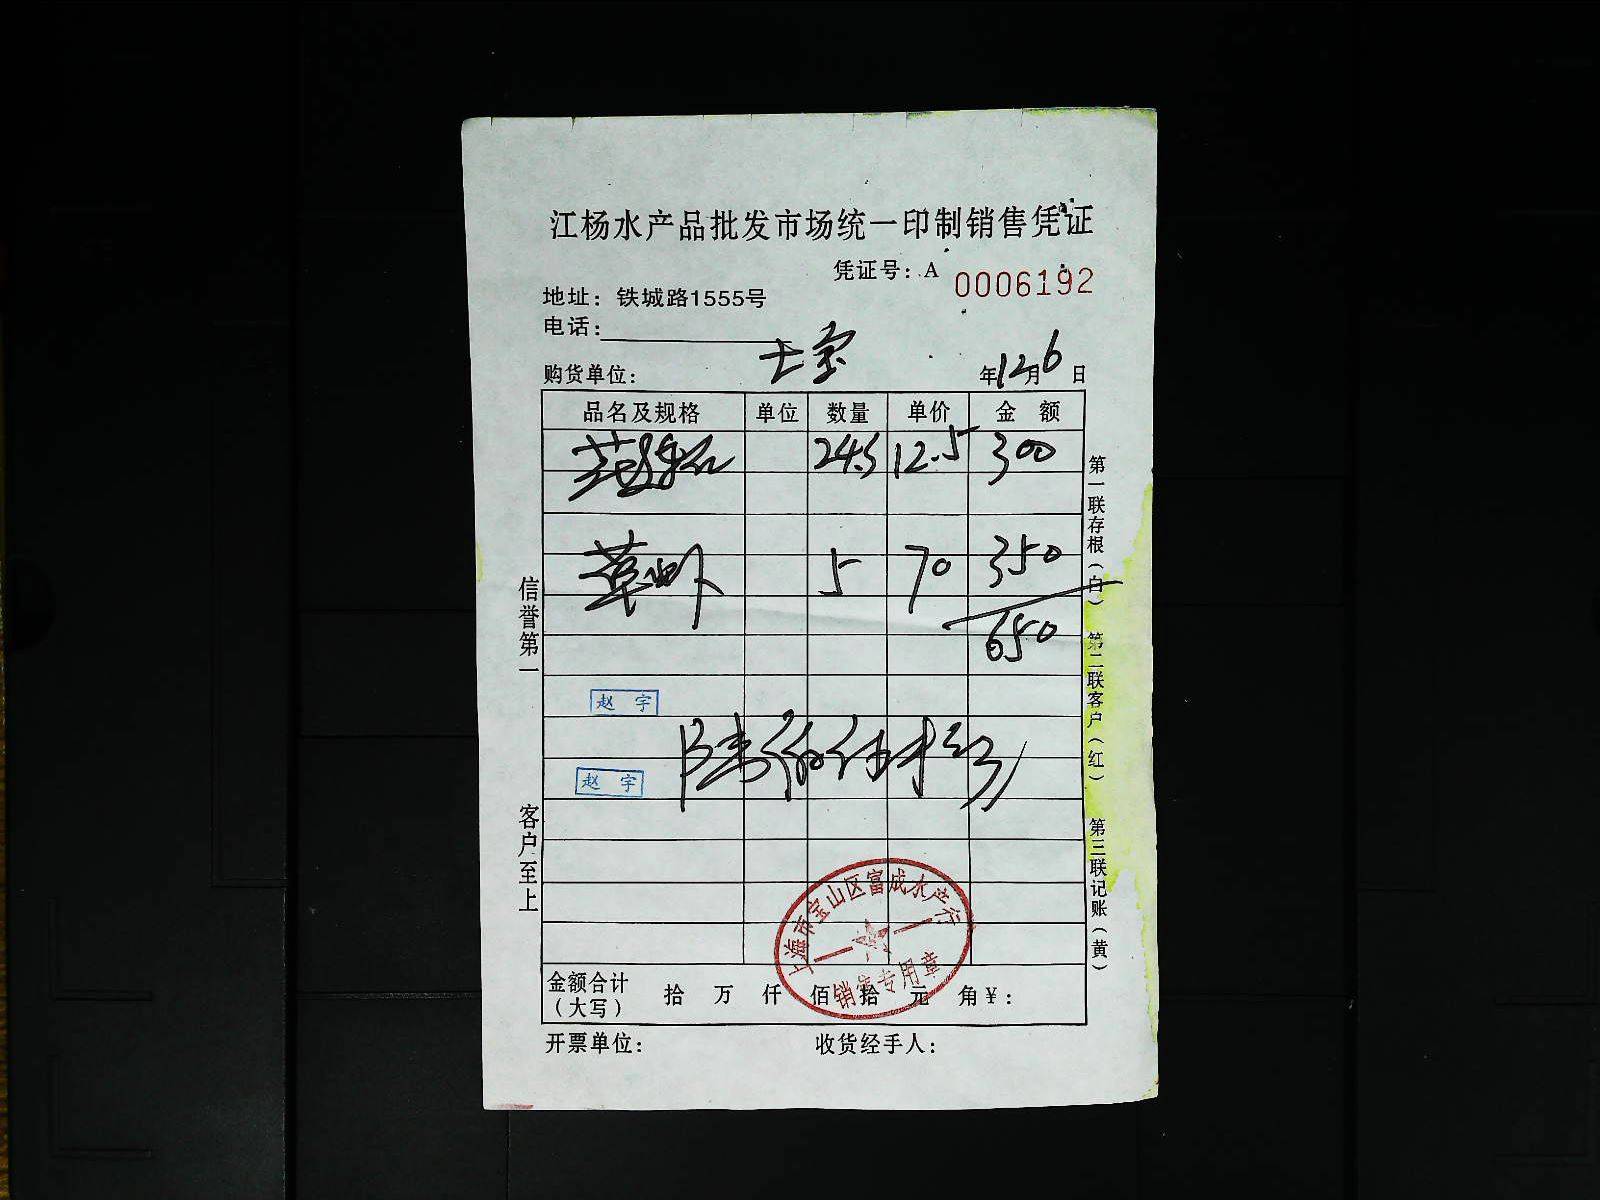 江杨水产品批发市场统一印制销售凭证
凭证号：A 0006192
地址：铁城路1555号
电话：
购货单位： 年12月6日
品名及规格 单位 数量 单价 金额
24.5 12.5 300
草虾 5 70 350
650
赵宇
赵宇
金额合计（大写） 拾 万 仟 佰 拾 元 角 ¥：
上海市宝山区富成水产行
销售专用章
开票单位： 收货经手人：
信誉第一 客户至上
第一联存根（白） 第二联客户（红） 第三联记账（黄）